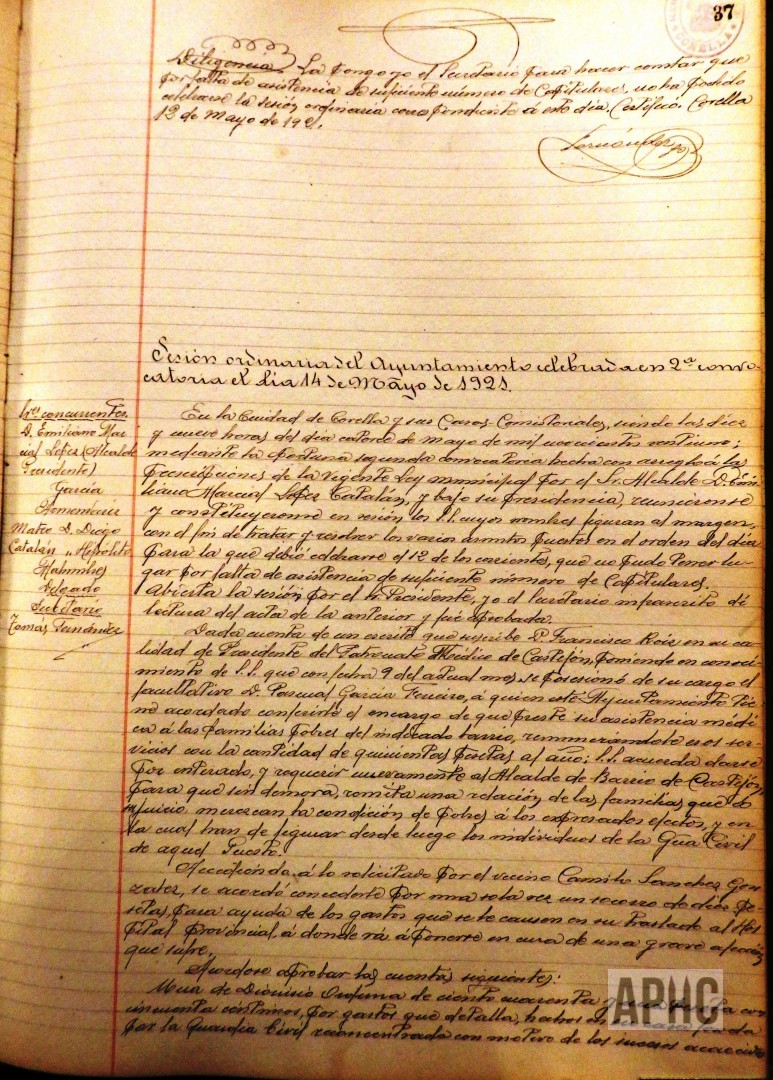 37
CORELLA
Diligencia. La pongo yo el Secretario para hacer constar que
por falta de asistencia de suficiente número de Capitulares, no ha podido
celebrarse la sesión ordinaria correspondiente á este día. Certifico. Corella
12 de Mayo de 1921.
Fernández
Sesión ordinaria del Ayuntamiento celebrada en 2ª convo-
catoria el día 14 de Mayo de 1921.
Sres. concurrentes
D. Emiliano Mar-
cial López (Alcalde
Presidente)
García
Armendáriz
Mateo D. Diego
Catalán " Hipólito
Malumbres
Delgado
Secretario
Tomás Fernández
En la Ciudad de Corella y sus Casas Consistoriales, siendo las diez
y nueve horas del día catorce de Mayo de mil novecientos veintiuno;
mediante la oportuna segunda convocatoria hecha con arreglo á las
prescripciones de la vigente Ley municipal por el Sr. Alcalde D. Emi-
liano Marcial López Catalán, y bajo su presidencia, reuniéronse
y constituyeronse en sesión los S.S. cuyos nombres figuran al margen,
con el fin de tratar y resolver los varios asuntos puestos en el orden del día
para la que debió celebrarse el 12 de los corrientes, que no pudo tener lu-
gar por falta de asistencia de suficiente número de Capitulares.
Abierta la sesión por el Sr. Presidente, yo el Secretario infrascrito dí
lectura del acta de la anterior y fué aprobada.
Dada cuenta de un escrito que suscribe D. Francisco Roig en su ca-
lidad de Presidente del Patronato Médico de Castejón, poniendo en conoci-
miento de S.S. que con fecha 9 del actual mes se posesionó de su cargo el
facultativo D. Pascual García Ferreiro, á quien este Ayuntamiento tie-
ne acordado conferirle el encargo de que preste su asistencia médi-
ca á las familias pobres del indicado barrio, remunerándole esos ser-
vicios con la cantidad de quinientas pesetas al año; S.S. acuerda darse
por enterado, y requerir nuevamente al Alcalde de Barrio de Castejón,
para que sin demora, remita una relación de las familias que á
su juicio merezcan la condición de pobres á los expresados efectos, y en
la cual han de figurar desde luego los individuos de la Gua. Civil
de aquel Puesto.
Accediendo á lo solicitado por el vecino Camilo Sanchez Gon-
zalez, se acordó concederle por una sola vez un socorro de diez pe-
setas, para ayuda de los gastos que se le causen en su traslado al Hos-
pital Provincial, á donde vá á ponerse en cura de una grave afección
que sufre.
Acordóse aprobar las cuentas siguientes:
Una de Dionisio de ciento cuarenta con
cincuenta céntimos, por gastos que detalla, hechos en
por la Guardia Civil reconcentrada con motivo de los sucesos acaecidos
APHC